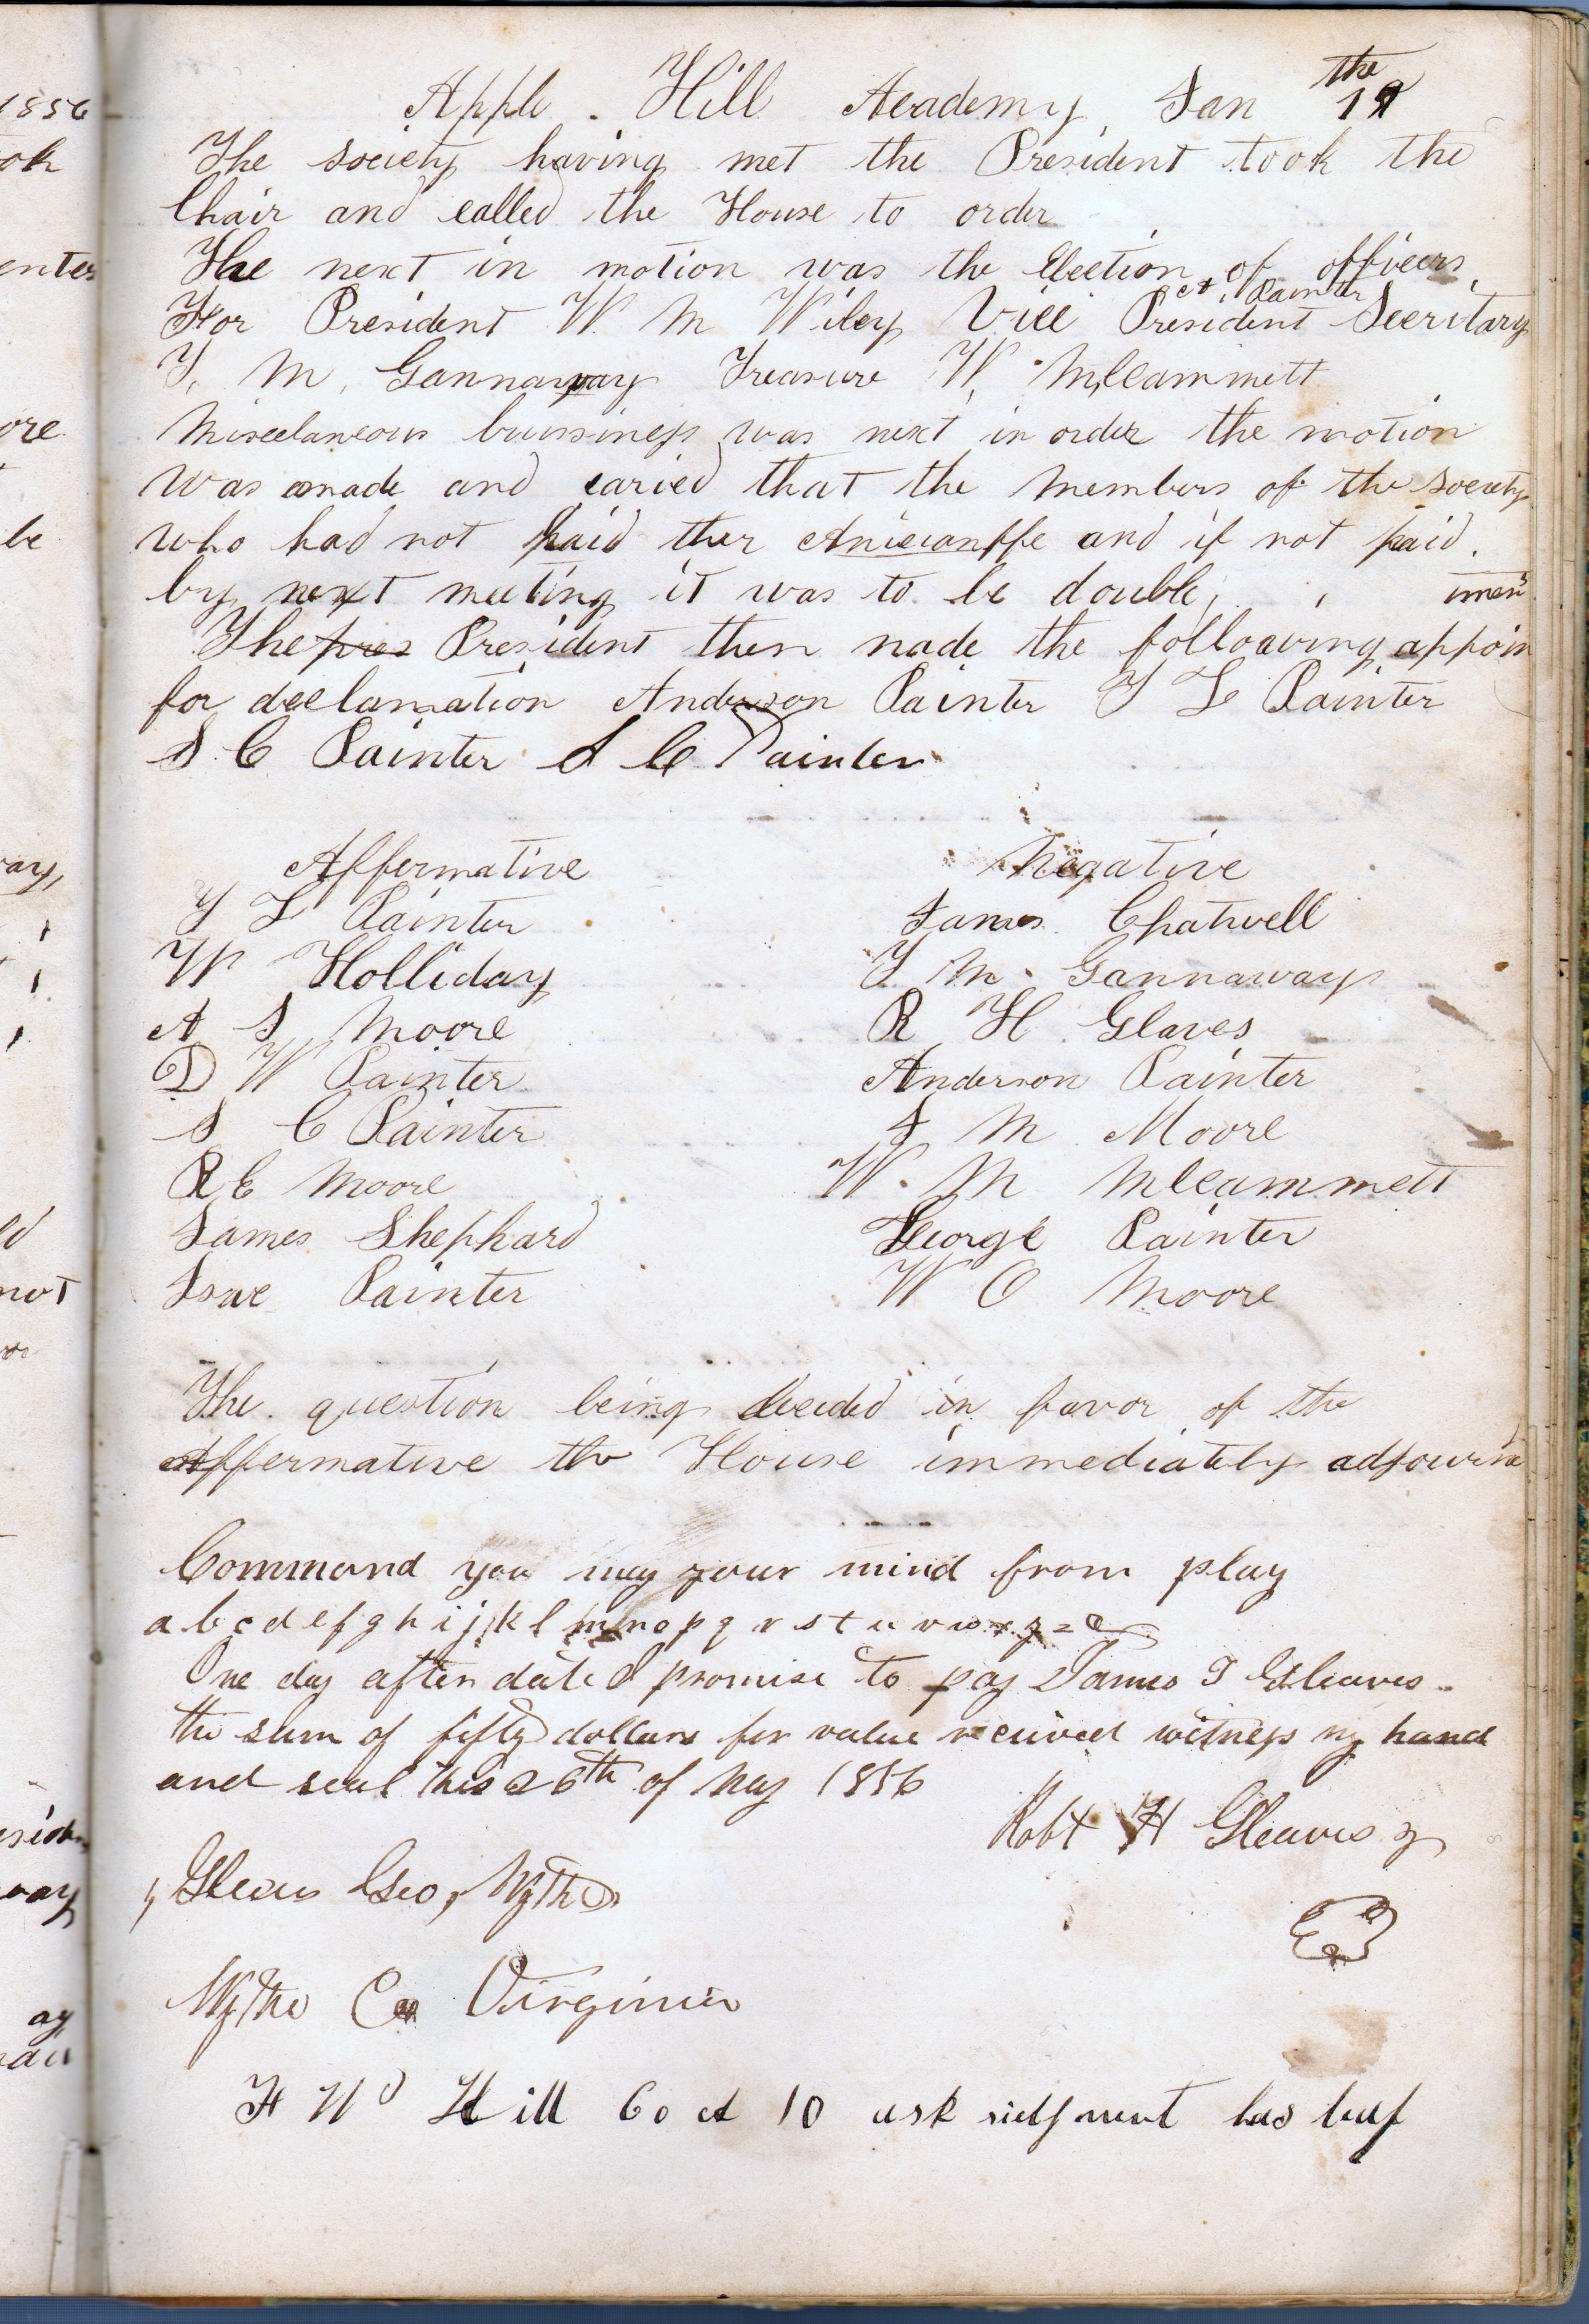 1856
Apple Hill Academy Jan 19 the
The society having met the President took the
Chair and called the House to order
The next in motion was the Election of officers
A. Painter
For President W M Wiley Vice President Secritary
T. M. Gannaway Treasure W. McCammett
Miscelaneous bussiness was next in order the motion
was made and caried that the members of the society
who had not paid ther and if not paid.
by next meeting it was to be double
ments
The pres President then made the following appoin
for declamation Anderson Painter T L Painter
S. C Painter S C Painter
Affermative Negative
T L Painter James Chatwell
W Holliday T M. Gannaway
A S Moore R H Glaves
D W Painter Anderson Painter
S C Painter J M Moore
R E Moore W. M McCammett
James Shephard George Painter
Isac Painter W O Moore
The question being decided in favor of the
affermative the House immediately adjourn
Command you may your mind from play
a b c d e f g h i j k l m n o p q r s t u v w x y z
One day after date I promise to pay James T Gleaves
the sum of fifty dollars for value received witness my hand
and seal this 26th of May 1856
Robt H Gleaves
Geo, Wythe
Wythe Co Virginia
Hill 60 10 ask has